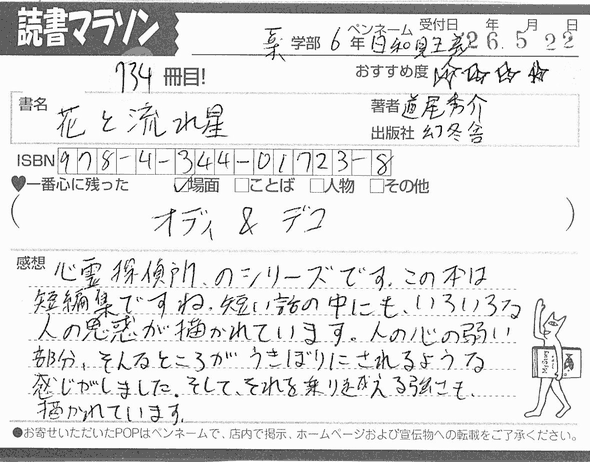 読書マラソン
薬 学部 6 年 ペンネーム 日和見主義 受付日 26年 5月 22日
734 冊目! おすすめ度 ☆☆☆☆
書名 花と流れ星 著者 道尾秀介
出版社 幻冬舎
ISBN 978-4-344-01723-8
♥一番心に残った ☑場面 □ことば □人物 □その他
( オディ & デコ )
感想 心霊探偵所、のシリーズです。この本は
短編集ですね。短い話の中にも、いろいろな
人の思惑が描かれています。人の心の弱い
部分、そんなところがうきぼりにされるような
感じがしました。そして、それを乗り越える強さも、
描かれています。
●お寄せいただいたPOPはペンネームで、店内で掲示、ホームページおよび宣伝物への転載をご了承ください。